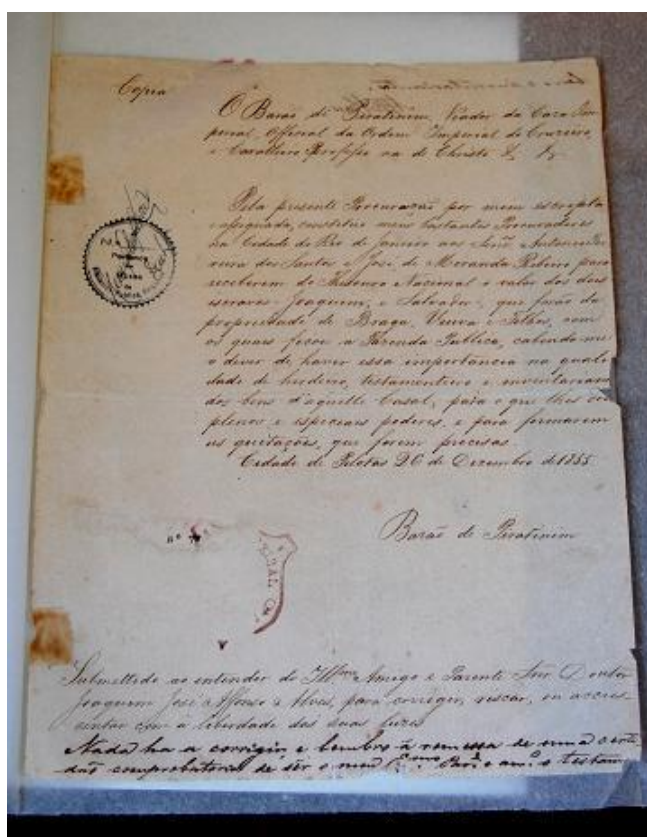 Copia
O Barão de Piratinim, Viador da Caza Im-
perial, Official da Ordem Imperial do Cruzeiro,
e Cavalleiro Professo na de Christo &. &.
Pela presente Procuração por mim escripta
e assignada, constituo meus bastantes Procuradores
na Cidade do Rio de Janeiro aos Senrs Antonio
reira dos Santos e José de Miranda Ribeiro para
receberem do Thesouro Nacional o valor dos dous
escravos - Joaquim, e Salvador -, que forão da
propriedade de Braga, Viuva e Filhos, com
os quais ficou a Fazenda Publica, cabendo-me
o dever de haver essa importancia na quali
dade de herdeiro, testamenteiro e inventarian
dos bens d'aquelle Casal, para o que lhes dou
plenos e especiaes poderes, e para firmarem
as quitações, que forem precisas.
Cidade de Pelotas 20 de Dezembro de 1855
Barão de Piratinim
nº
RAL
Submettido ao entender do Illmo Amigo e Parente Snr Doutor
Joaquim José Affonso Alves, para corrigir, riscar, ou accres-
centar com a liberdade das suas luzes
Nada ha a corrigir, e lembro a remessa de uma certi
dão comprobatoria de ser o meu Exmo e amo testam